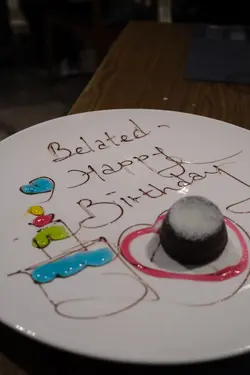 Belated -
Happy
Birthday